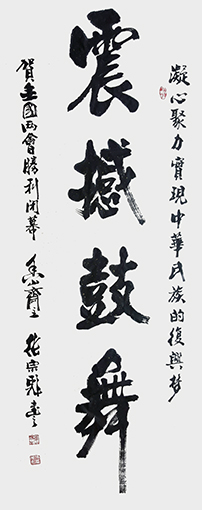 凝心聚力實現中華民族的復興夢
震撼鼓舞
賀全國兩會勝利閉幕